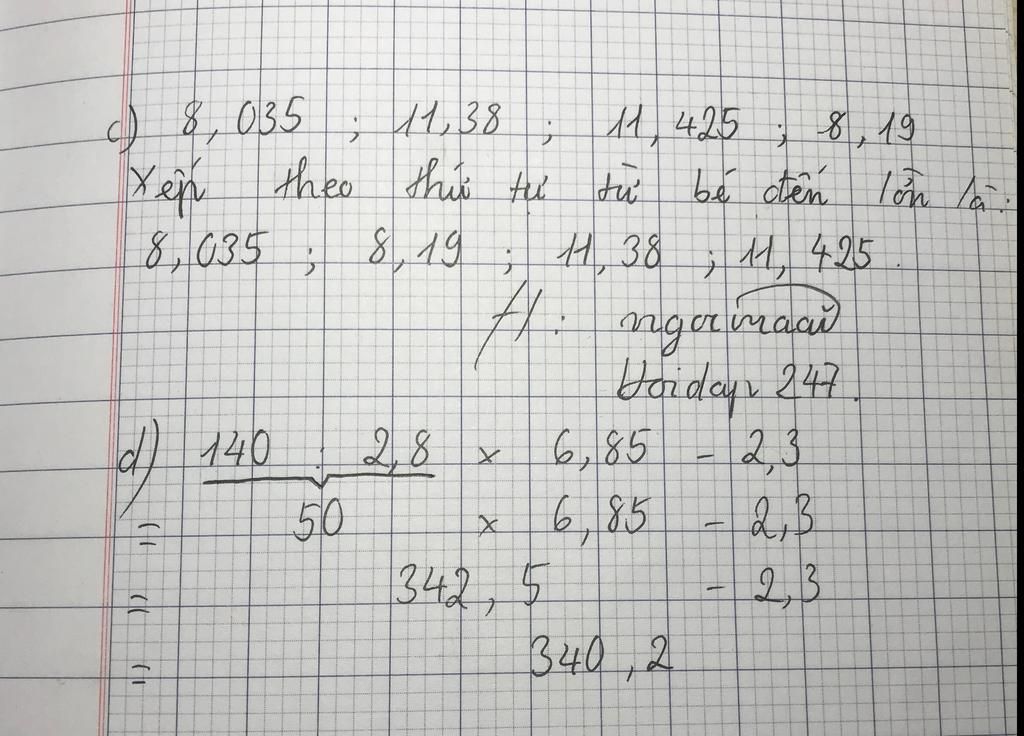 c) 8,035 ; 11,38 ; 11,425 ; 8,19
Xếp theo thứ tự từ bé đến lớn là:
8,035 ; 8,19 ; 11,38 ; 11,425.
247.
d) 140 : 2,8 x 6,85 - 2,3
= 50 x 6,85 - 2,3
= 342,5 - 2,3
= 340,2